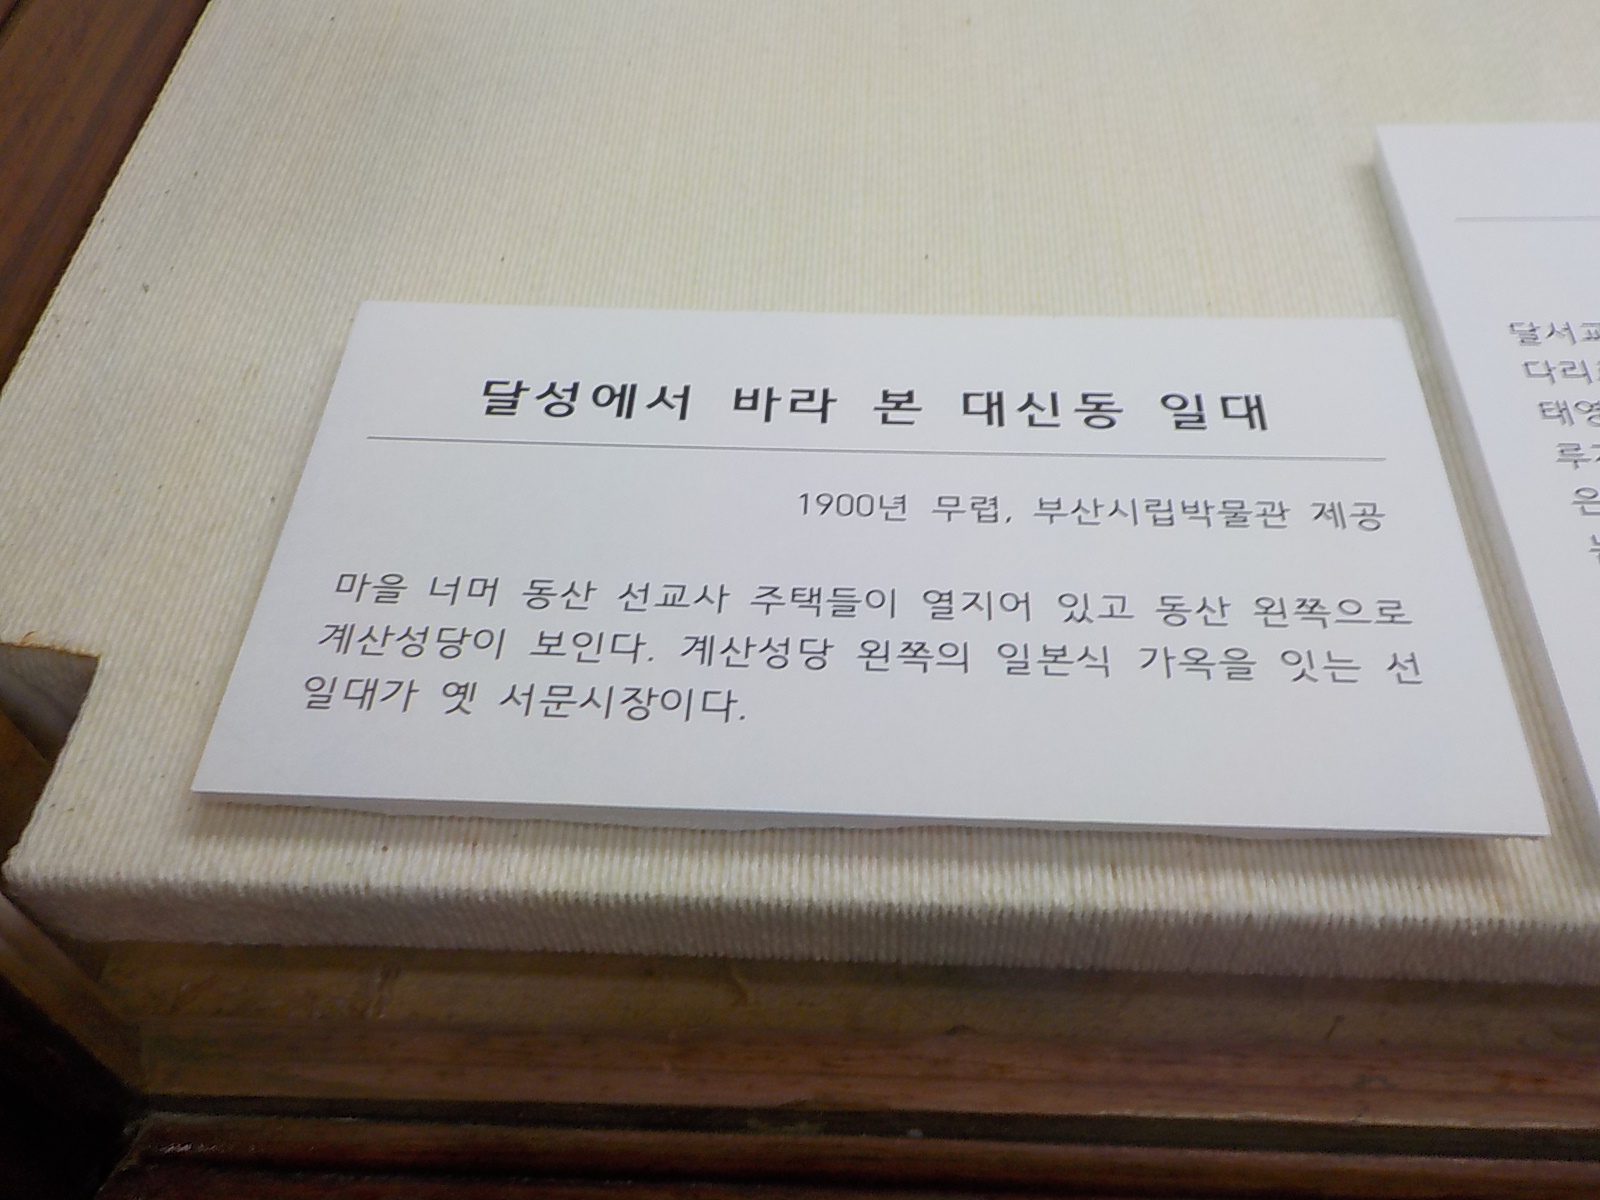 달성에서 바라 본 대신동 일대
1900년 무렵, 부산시립박물관 제공
마을 너머 동산 선교사 주택들이 열지어 있고 동산 왼쪽으로
계산성당이 보인다. 계산성당 왼쪽의 일본식 가옥을 잇는 선
일대가 옛 서문시장이다.
달서교
다리
태영
루
은